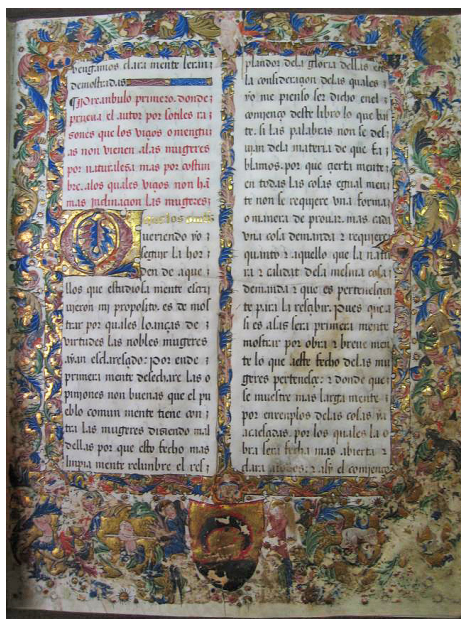 vengamos clara mente seran
demostradas
Preanbulo primero. donde
prueua el autor por sotiles ra
sones que los viçios o mengu
as non vienen alas mugeres
por naturalesa mas por costun
bre. alos quales viçios non hã
mas inclinaçion las mugeres
Queriendo yo
seguir la hor
den de aque
llos que estudiosa mente escri
uieron mi proposito. es de mos
trar por quales loanças de
virtudes las nobles mugeres
ayan esclaresçido: por ende
primera mente desechare las o
piniones non buenas que el pu
eblo comun mente tiene con
tra las mugeres disiendo mal
dellas por que esto fecho mas
linpia mente relunbre el res
plandor dela gloria dellas en
la consideraçion delas quales
yo me pienso ser dicho enel
comienço deste libro lo que ban
te. si las palabras non se des
uian dela materia de que fa
blamos. por que çierta mente
en todas las cosas egual men
te non se requiere vna forma
o manera de prouar. mas cada
vna cosa demanda z requiere
quanto z aquello que la natu
ra z calidat dessa mesma cosa
demanda z que es pertenesçien
te para la resçebir. pues que a
si es assi sera primera mente
mostrar por obra z breue men
te lo que aeste fecho delas mu
geres pertenesçe: z donde que
se muestre mas larga mente
por enxenplos delas cosas ya
acaesçidas. por los quales la o
bra sera fecha mas abierta z
clara z asi el comienço